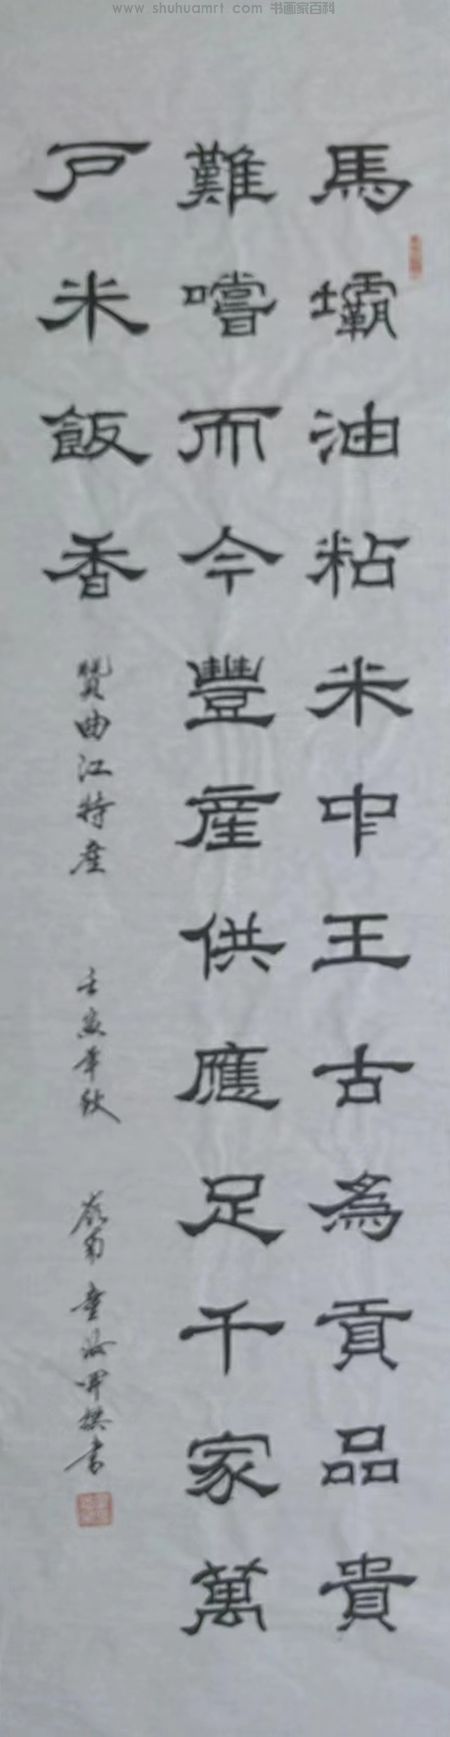 www.shuhuamrt.com 书画家百科
馬壩油粘米中王古為貢品貴
難嚐而今豐産供應足千家萬
戶米飯香
贊曲江特産
年秋
嶺南 書